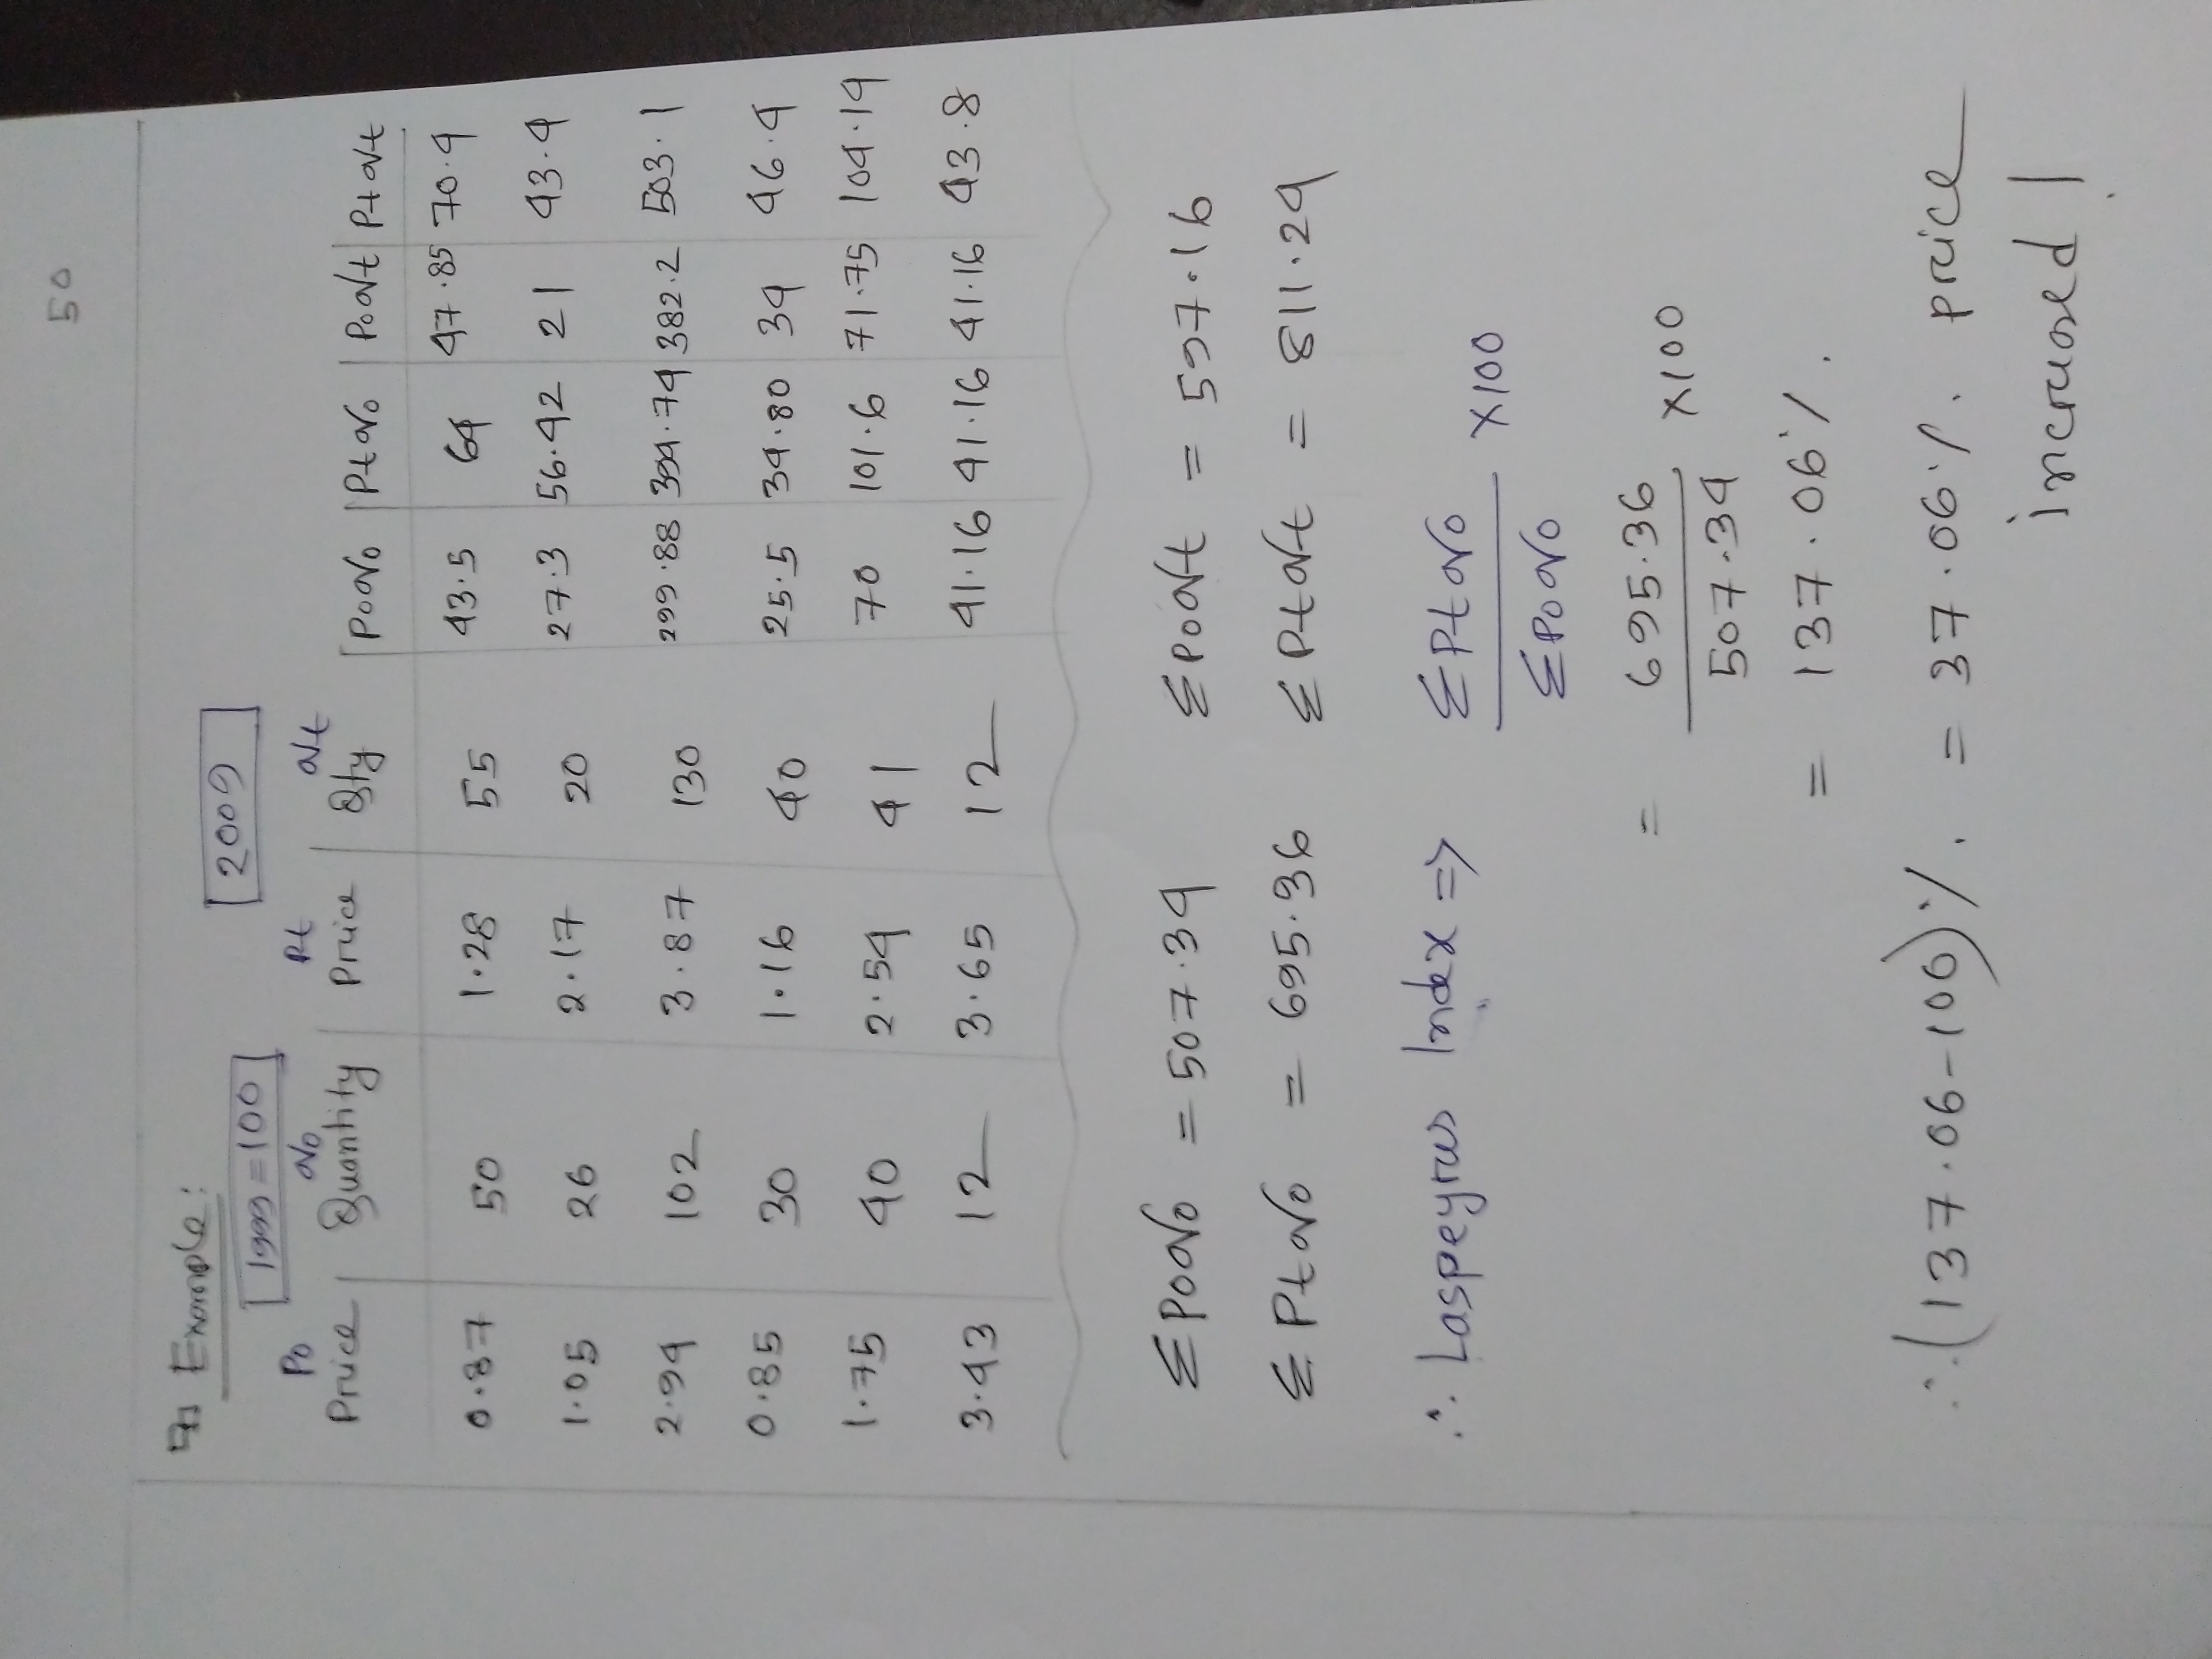 50
Example:
1999=100 2009
Po qo Pt qt
Price Quantity Price Qty Poqo Ptqo Poqt Ptqt
0.87 50 1.28 55 43.5 64 47.85 70.4
1.05 26 2.17 20 27.3 56.42 21 43.4
2.94 102 3.87 130 299.88 394.74 382.2 503.1
0.85 30 1.16 40 25.5 34.80 34 46.4
1.75 40 2.54 41 70 101.6 71.75 104.14
3.43 12 3.65 12 41.16 41.16 41.16 43.8
ΣPoqo = 507.34 ΣPoqt = 597.16
ΣPtqo = 695.36 ΣPtqt = 811.24
∴ Laspeyres Index => ΣPtqo / ΣPoqo ×100
= 695.36 / 507.34 ×100
= 137.06%.
∴ (137.06-100)%. = 37.06%. price
increased |